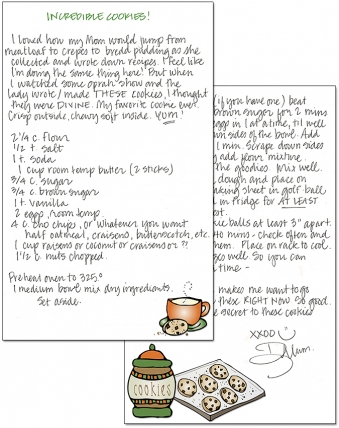 INCREDIBLE COOKIES!
I loved how my Mom would jump from
meatloaf to crepes to bread pudding as she
collected and wrote down recipes. I feel like
I'm doing the same thing here! But when
I watched some oprah show and the
lady wrote/made THESE cookies, I thought
they were DIVINE. My favorite cookie ever.
Crisp outside, chewy soft inside. YUM!
2 1/4 c. flour
1/2 t. salt
1 t. soda
1 cup room temp butter (2 sticks)
3/4 c. sugar
3/4 c. brown sugar
1 t. vanilla
2 eggs, room temp
4 c. cho chips, or whatever you want
half oatmeal, craisens, butterscotch, etc.
1 cup raisens or coconut or craisens or ??
1 1/2 c. nuts chopped.
Preheat oven to 325°
1 medium bowl mix dry ingredients.
Set aside.
(if you have one) beat
brown sugar for 2 mins
eggs in 1 at a time, til well
down sides of the bowl. Add
1 min. Scrape down sides
add flour mixture.
the goodies. Mix well.
dough and place on
baking sheet in golf ball
in fridge for AT LEAST
balls at least 3" apart.
mins - check often and
them. Place on rack to cool.
well. So you can
time -
makes me want to go
these RIGHT NOW. So good.
secret to these cookies
XXOO
Mum.
cookies